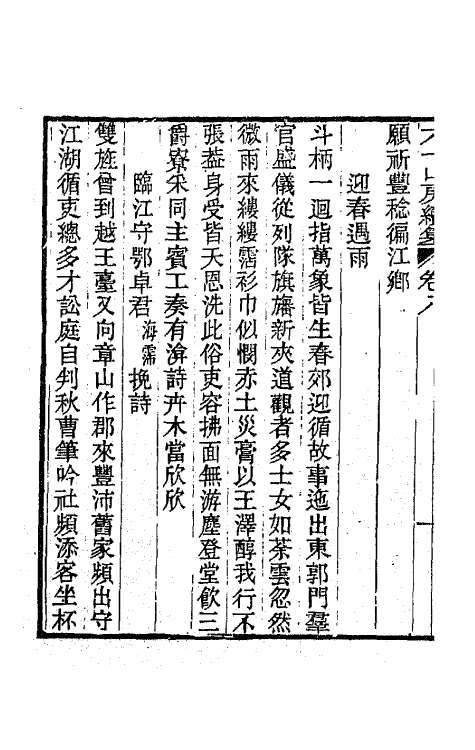 願祈豐稔徧江鄉
迎春遇雨
斗柄一迴指萬象皆生春郊迎循故事迤出東郭門羣
官盛儀從列隊旗旛新夾道觀者多士女如荼雲忽然
微雨來縷縷霑衫巾似憫赤土災膏以王澤醇我行不
張葢身受皆天恩洗此俗吏容拂面無游塵登堂飲三
爵寮寀同主賓工奏有渰詩卉木當欣欣
臨江守鄂卓君海霈挽詩
雙旌曾到越王臺又向章山作郡來豐沛舊家頻出守
江湖循吏總多才訟庭自判秋曹筆吟社頻添客坐杯